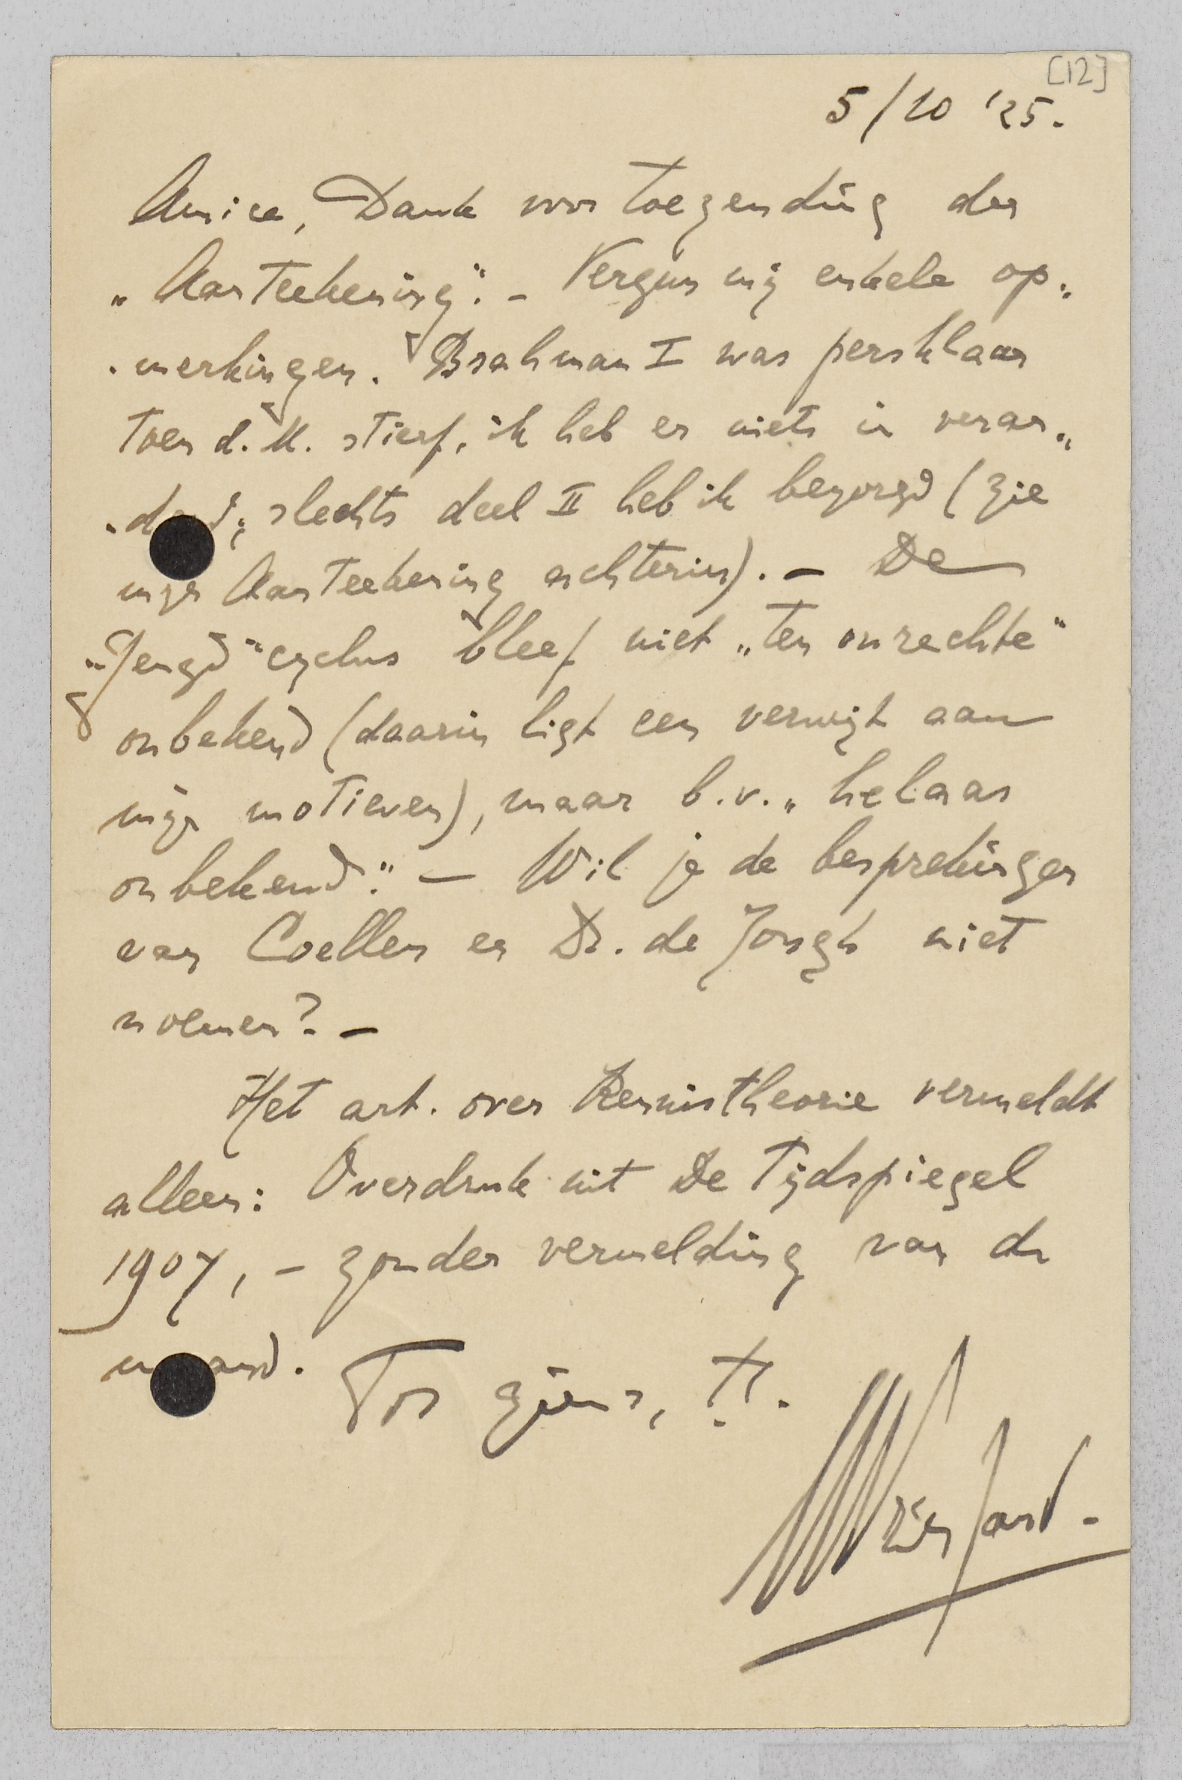 [12]
5/10 '25.
Amice, Dank voor toezending der
„Aanteekening". – Vergun mij enkele op„
„merkingen. Brahman I was persklaar
toen d. M. stierf, ik heb er niets in veran„
„derd; slechts deel II heb ik bezorgd (zie
mijn Aanteekening achterin). – De
„Jeugd" cyclus bleef niet „ten onrechte"
onbekend (daarin ligt een verwijt aan
mijn motieven), maar b.v. „helaas
onbekend". – Wil je de besprekingen
van Coellen en Dr. de Jongh niet
noemen? –
Het art. over Kennistheorie vermeldt
alleen: Overdruk uit De Tijdspiegel
1907, – zonder vermelding van de
maand.
Tot ziens, t.t.